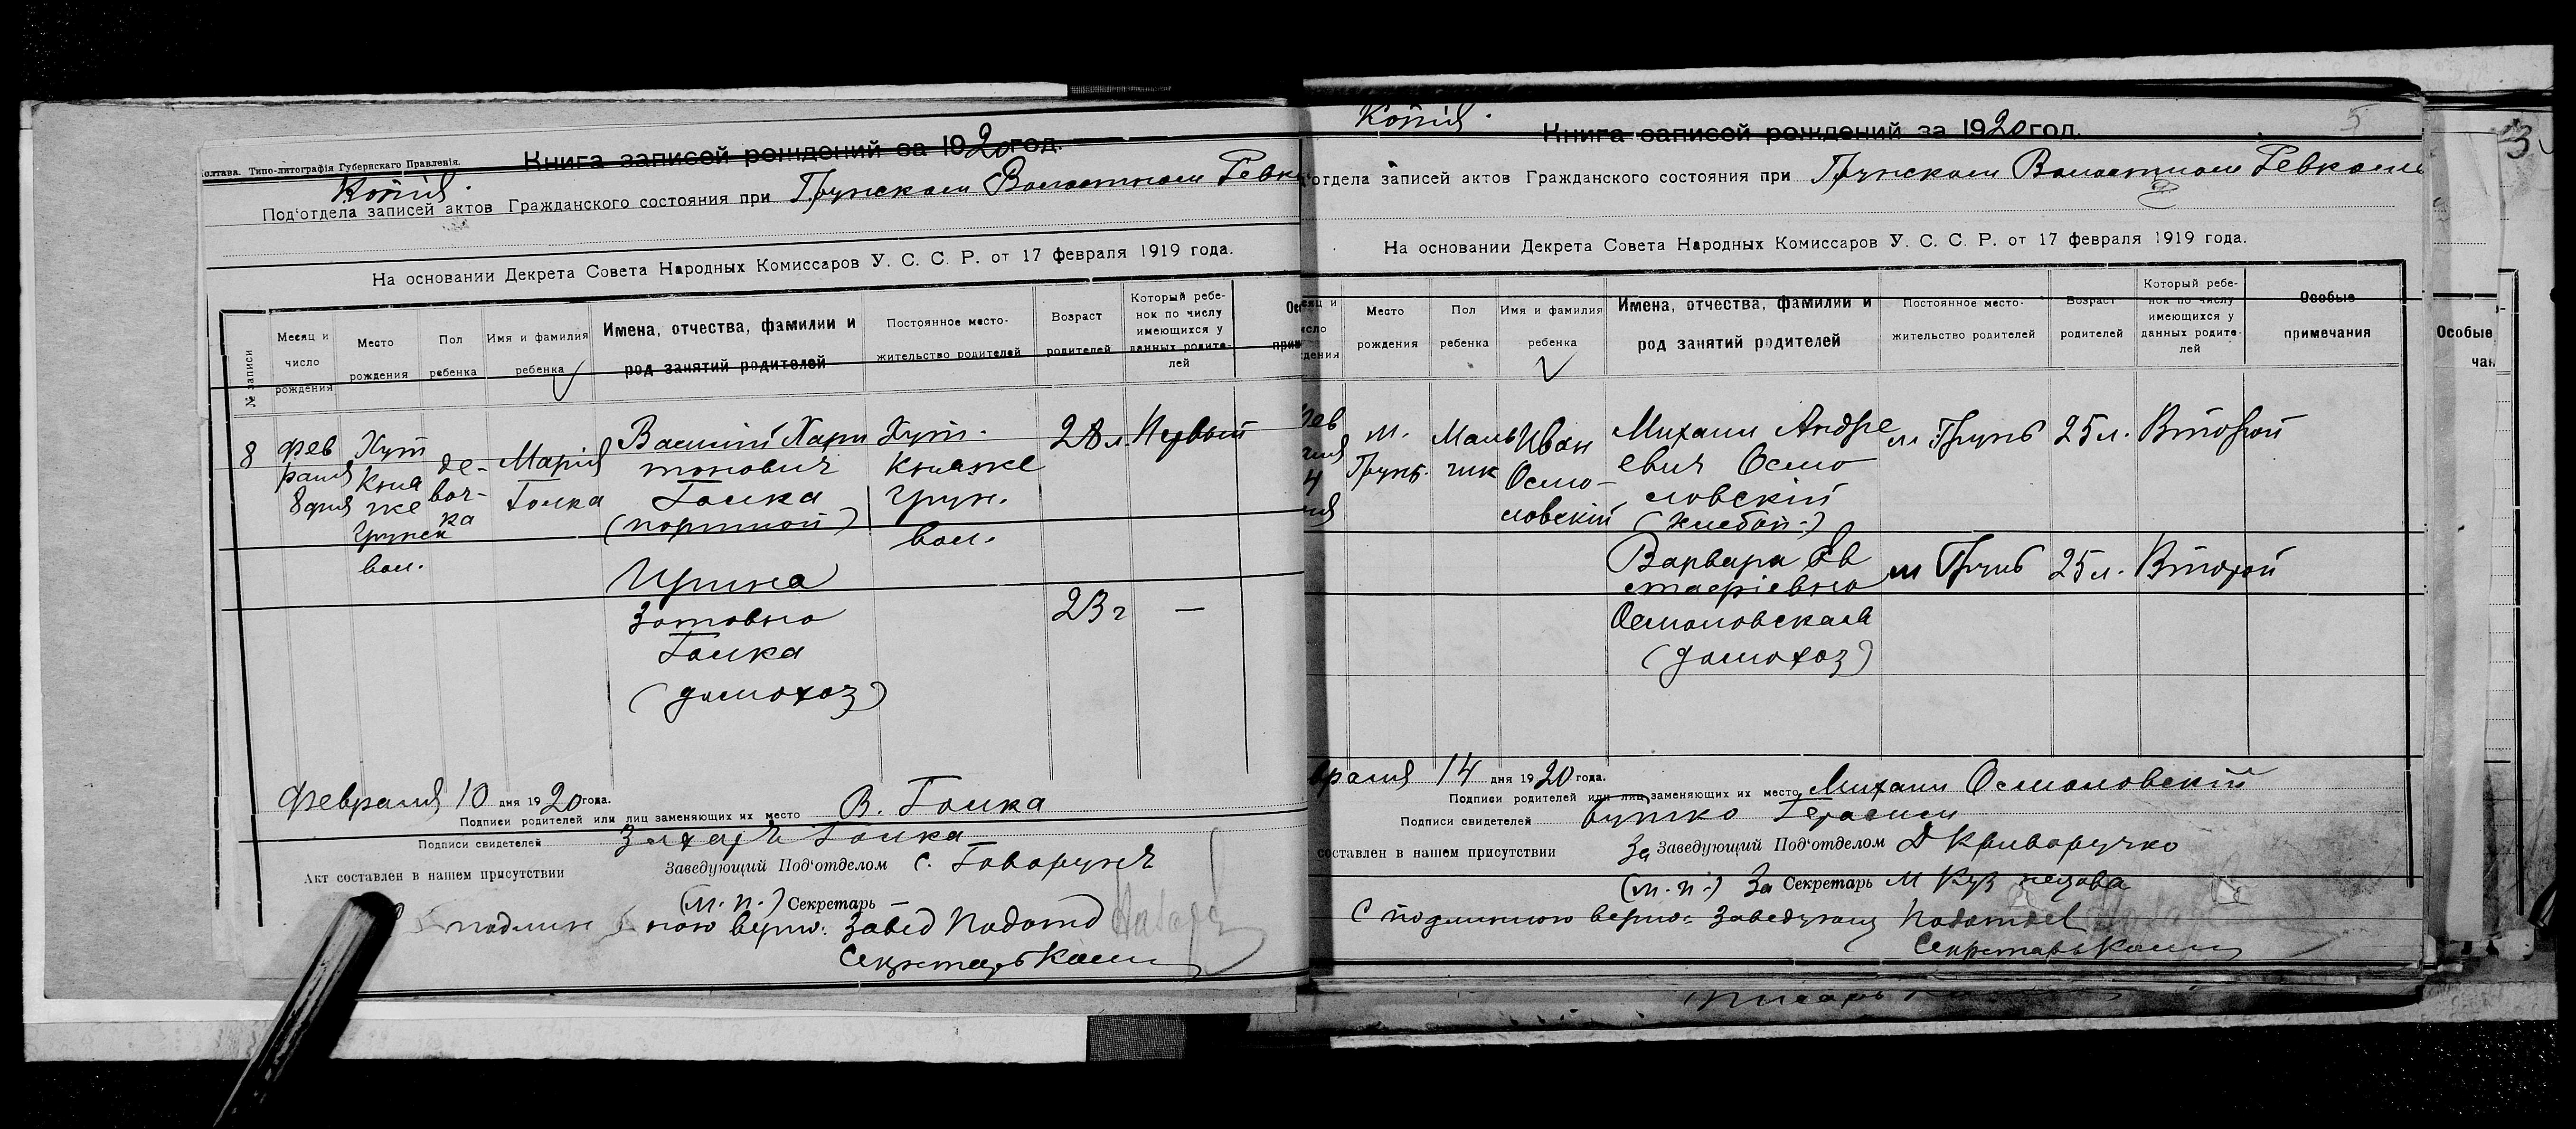 Полтава. Типо-литографія Губернскаго Правленія.
Книга записей рождений за 1920 год.
Копія.
Под'отдела записей актов Гражданского состояния при Грунском Волостном Ревк
На основании Декрета Совета Народных Комиссаров У. С. С. Р. от 17 февраля 1919 года.
№ записи
Месяц и число рождения
Место рождения
Пол ребенка
Имя и фамилия ребенка
Имена, отчества, фамилии и род занятий родителей
Постоянное место-жительство родителей
Возраст родителей
Который ребе-нок по числу имеющихся у данных родите-лей
8
Фев
раля
8 дня
Хут
Кня
же
Грунск
вол.
де-
воч-
ка
Марія
Гомка
Василій Хари
тонович
Гомка
(портной)
Хут.
Княже
Грун.
вол.
28 л.
Первый
Ирина
Зотовна
Гомка
(домохоз)
23 г
—
Февраля 10 дня 1920 года.
Подписи родителей или лиц заменяющих их место В. Гомка
Подписи свидетелей Захарь Гомка
Акт составлен в нашем присутствии
Заведующий Под'отделом С. Говорунъ
(м. п.) Секретарь —
С подлин ною верно: Завед Подотд
Секретарь
Копія.
5
Книга записей рождений за 1920 год.
отдела записей актов Гражданского состояния при Грунском Волостном Ревкоме
На основании Декрета Совета Народных Комиссаров У. С. С. Р. от 17 февраля 1919 года.
Место рождения
Пол ребенка
Имя и фамилия ребенка
Имена, отчества, фамилии и род занятий родителей
Постоянное место-жительство родителей
Возраст родителей
Который ребе-нок по числу имеющихся у данных родите-лей
Особые примечания
м.
Грунь.
Маль
чик
Иван
Осмо-
ловскій
Михаил Андре
евич Осмо
ловскій
(хлебоп.)
м Грунь
25 л.
Второй
Варвара Ев
стафіевна
Осмоловская
(домохоз)
м Грунь
25 л.
Второй
враля 14 дня 1920 года.
Подписи родителей или лиц заменяющих их место Михаил Осмоловскій
Подписи свидетелей Бутко Герасим
составлен в нашем присутствии
За Заведующий Под'отделом Д Криворучко
(м. п.) За Секретарь М Кузнецова
С подлинною верно: Заведующ Подотдел
Секретарь
3
Особые